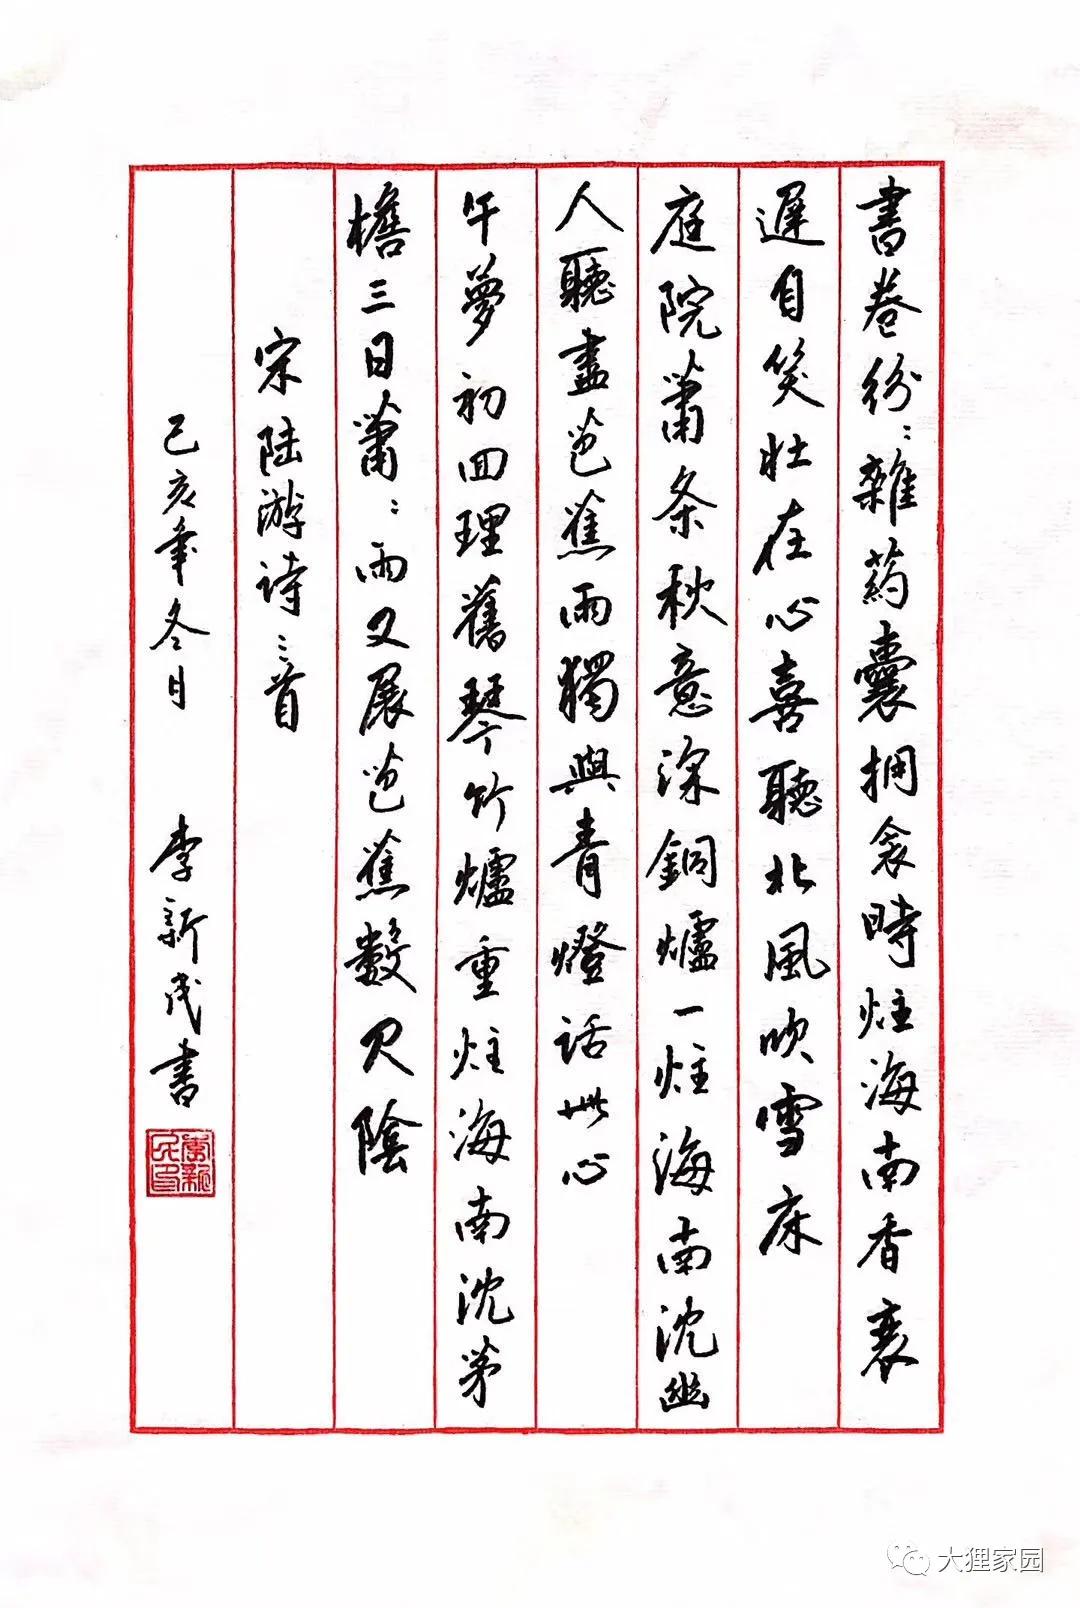 書卷紛〻雜葯囊拥衾時炷海南香衰
遲自笑壮在心喜聽北風吹雪床
庭院蕭条秋意深銅爐一炷海南沈幽
人聽盡芭蕉雨獨與青燈話此心
午夢初回理舊琴竹爐重炷海南沈茅
檐三日蕭〻雨又展芭蕉數尺陰
宋陆游诗三首
己亥年冬日 李新民書
李新民印
大狸家园